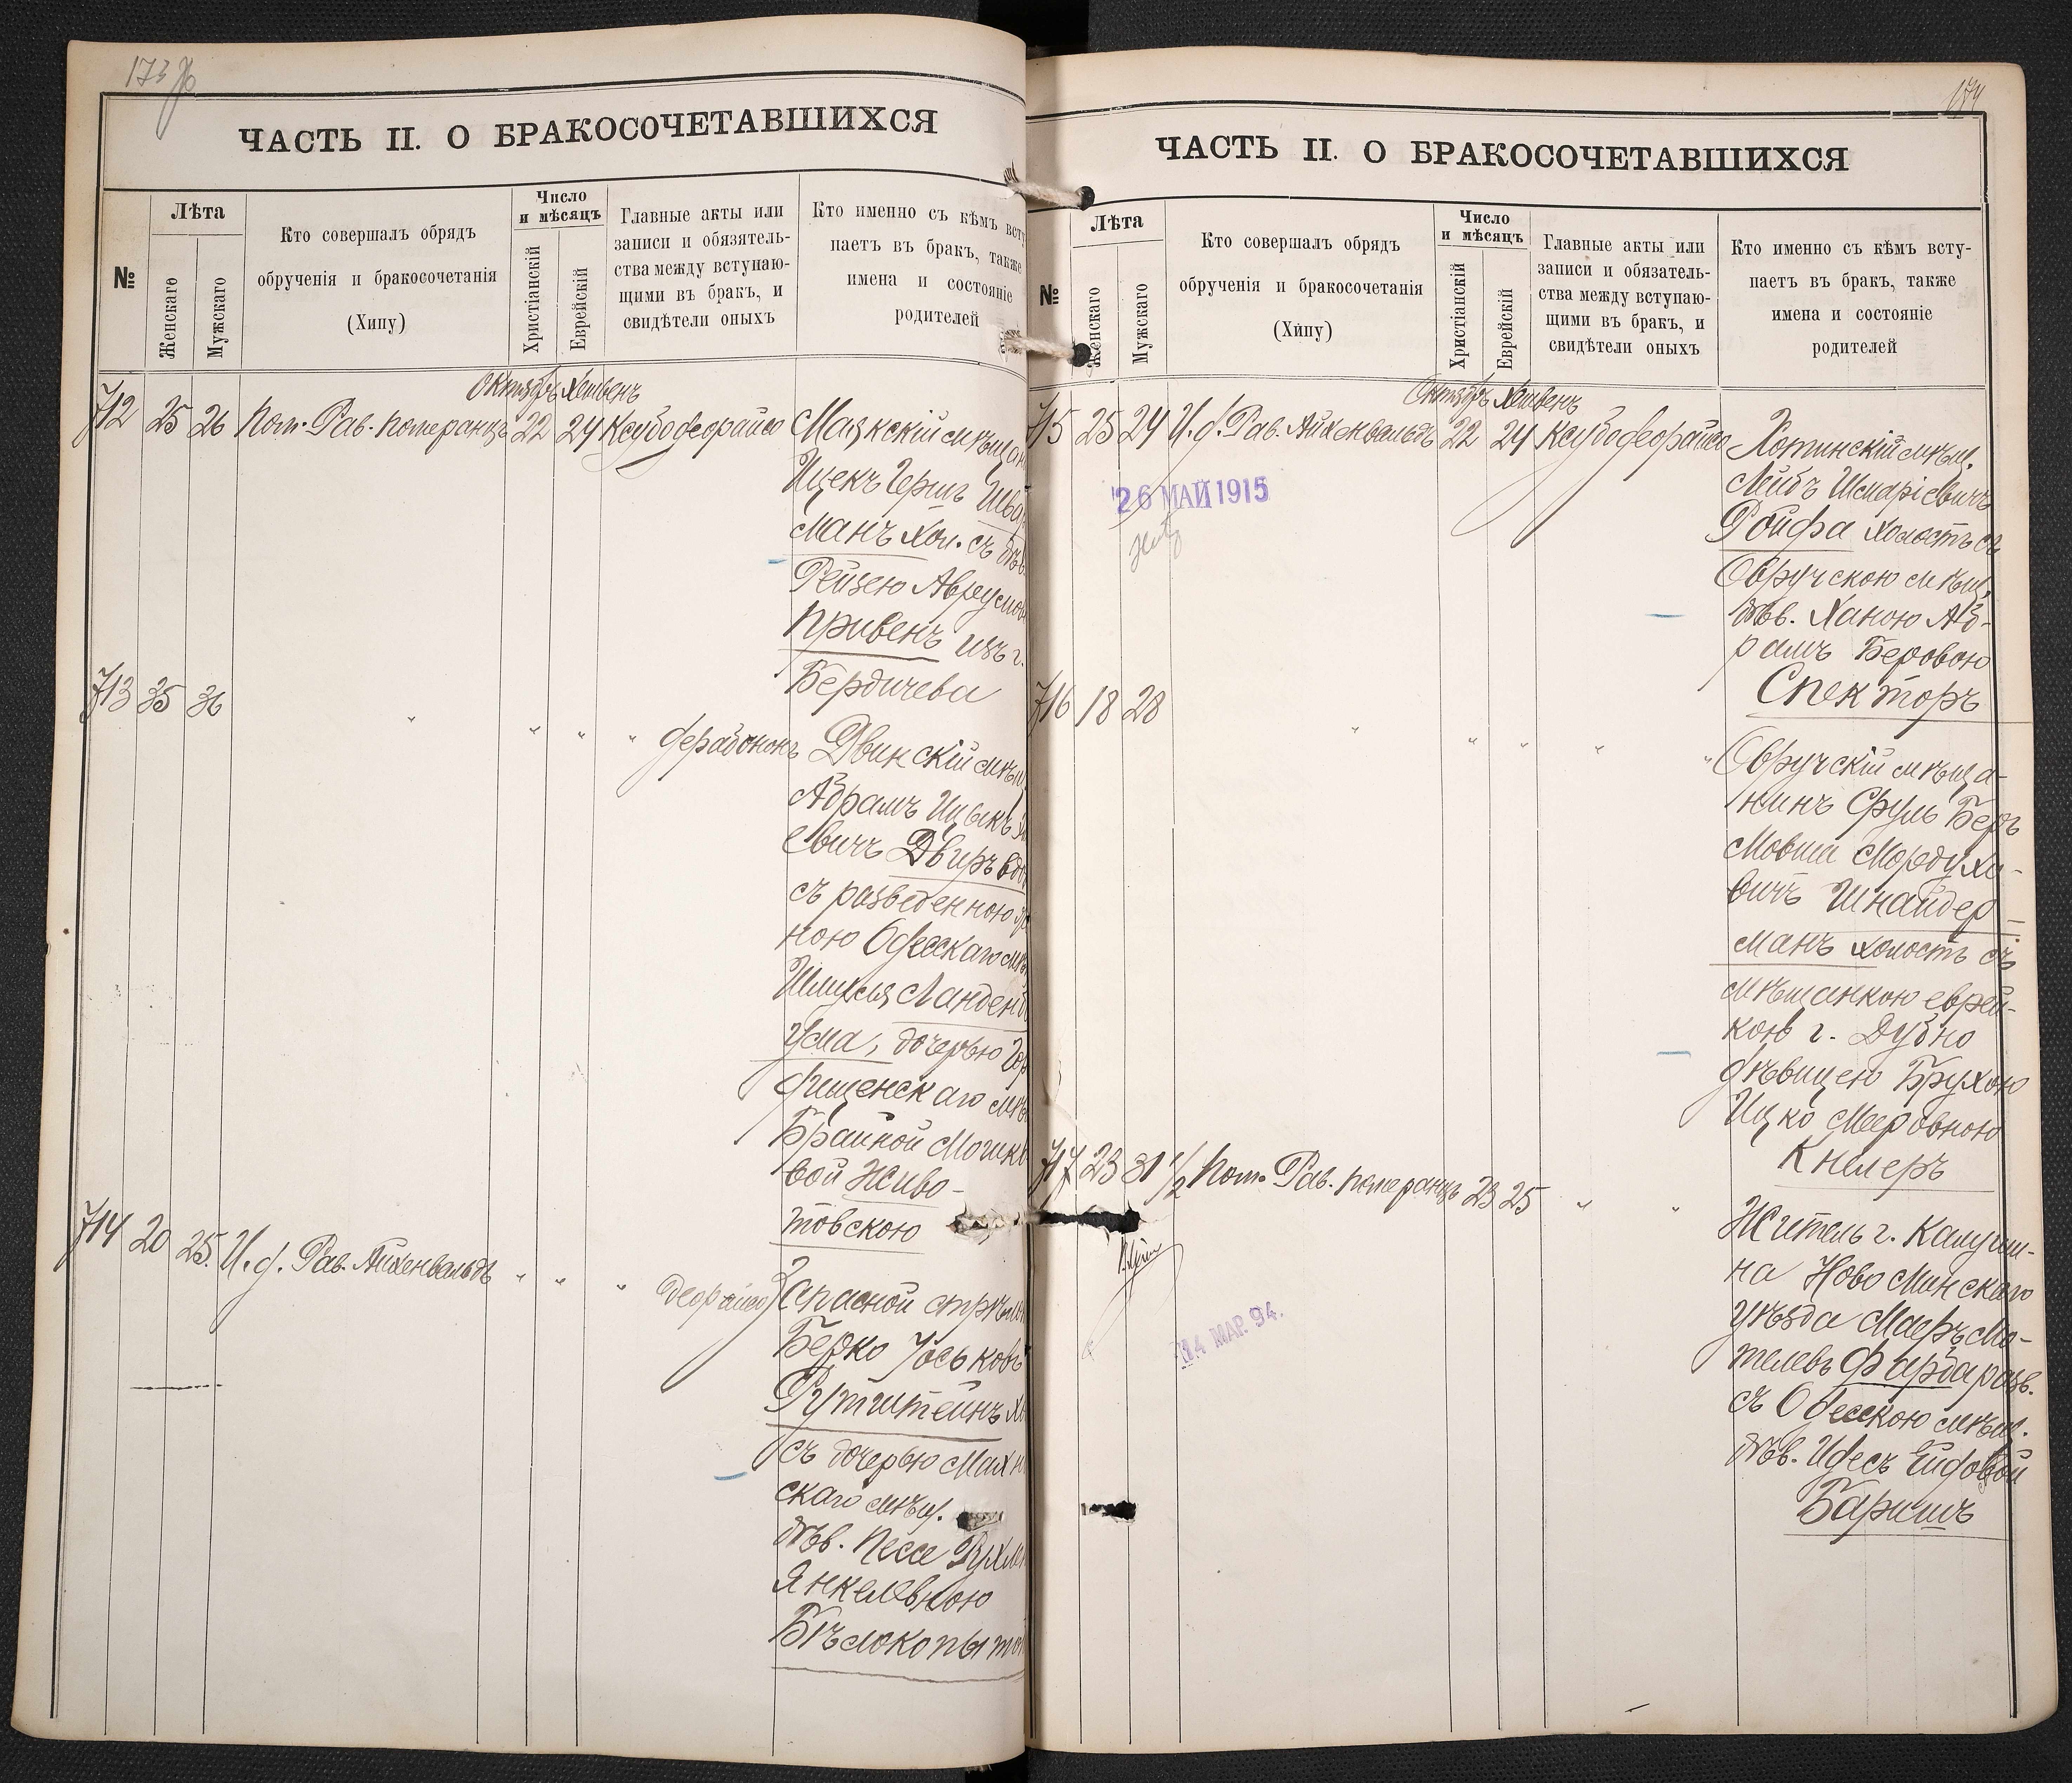 ЧАСТЬ II. О БРАКОСОЧЕТАВШИХСЯ
№
Лѣта
Женскаго
Мужскаго
Кто совершалъ обрядъ
обрученія и бракосочетанія
(Хипу)
Число
и мѣсяцъ
Христіанскій
Еврейскій
Главные акты или
записи и обязатель-
ства между вступаю-
щими въ бракъ, и
свидѣтели оныхъ
Кто именно съ кѣмъ всту
паетъ въ бракъ, также
имена и состояніе
родителей
Октябрь Хешвенъ
712 25 26 Пом. Рав. Померанцъ 22 24 Ксубо деорайсо
Маякскій мѣщан
Ицекъ Герш Шва
манъ хол. съ дѣв
Рейзею Аврумов
Кривенъ изъ г.
Бердичева
713 35 36 " " " " дерабононъ
Двинскій мѣщ
Абрамъ Ицыкъ
евичъ Двиръ вдо
съ разведенною
ною Одесскаго мѣ
Шлиомы Ланденб
ума, дочерью
фищенскаго мѣ
Брайной Мошко
вой Живо-
товскою
714 20 25 И. д. Рав. Айхенвальдъ " " " деорайсо
Запасной стрѣло
Берко Іоськовъ
Рутштейнъ хо
съ дочерью Махн
скаго мѣщ.
дѣв. Песе Рухле
Янкелевною
Бѣлокопытов
174
ЧАСТЬ II. О БРАКОСОЧЕТАВШИХСЯ
№
Лѣта
Женскаго
Мужскаго
Кто совершалъ обрядъ
обрученія и бракосочетанія
(Хипу)
Число
и мѣсяцъ
Христіанскій
Еврейскій
Главные акты или
записи и обязатель-
ства между вступаю-
щими въ бракъ, и
свидѣтели оныхъ
Кто именно съ кѣмъ всту-
паетъ въ бракъ, также
имена и состояніе
родителей
Октябрь Хешвенъ
715 25 24 И. д. Рав. Айхенвальдъ 22 24 Ксубо деорайсо
26 МАЙ 1915
Хотинскій мѣщ.
Лейбъ Шмаріевичъ
Ройфа холостъ съ
Овручскою мѣщ.
дѣв. Ханою Аб-
рамъ Беровою
Спекторъ
716 18 28 " " " " "
Овручскій мѣща-
нинъ Сруль Беръ
Мовша Мордухо-
вичъ Шнайдер-
манъ холостъ съ
мѣщанкою еврей-
кою г. Дубно
дѣвицею Брухою
Ицко Мееровною
Кнелеръ
717 23 31 1/2 Пом. Рав. Померанцъ 23 25 " "
14 МАР. 94.
Житель г. Калуши-
на Ново Минскаго
уѣзда Маеръ Мо-
телевъ Фарба разв.
съ Одесскою мѣщ.
дѣв. Идесъ Ейдовой
Баришъ